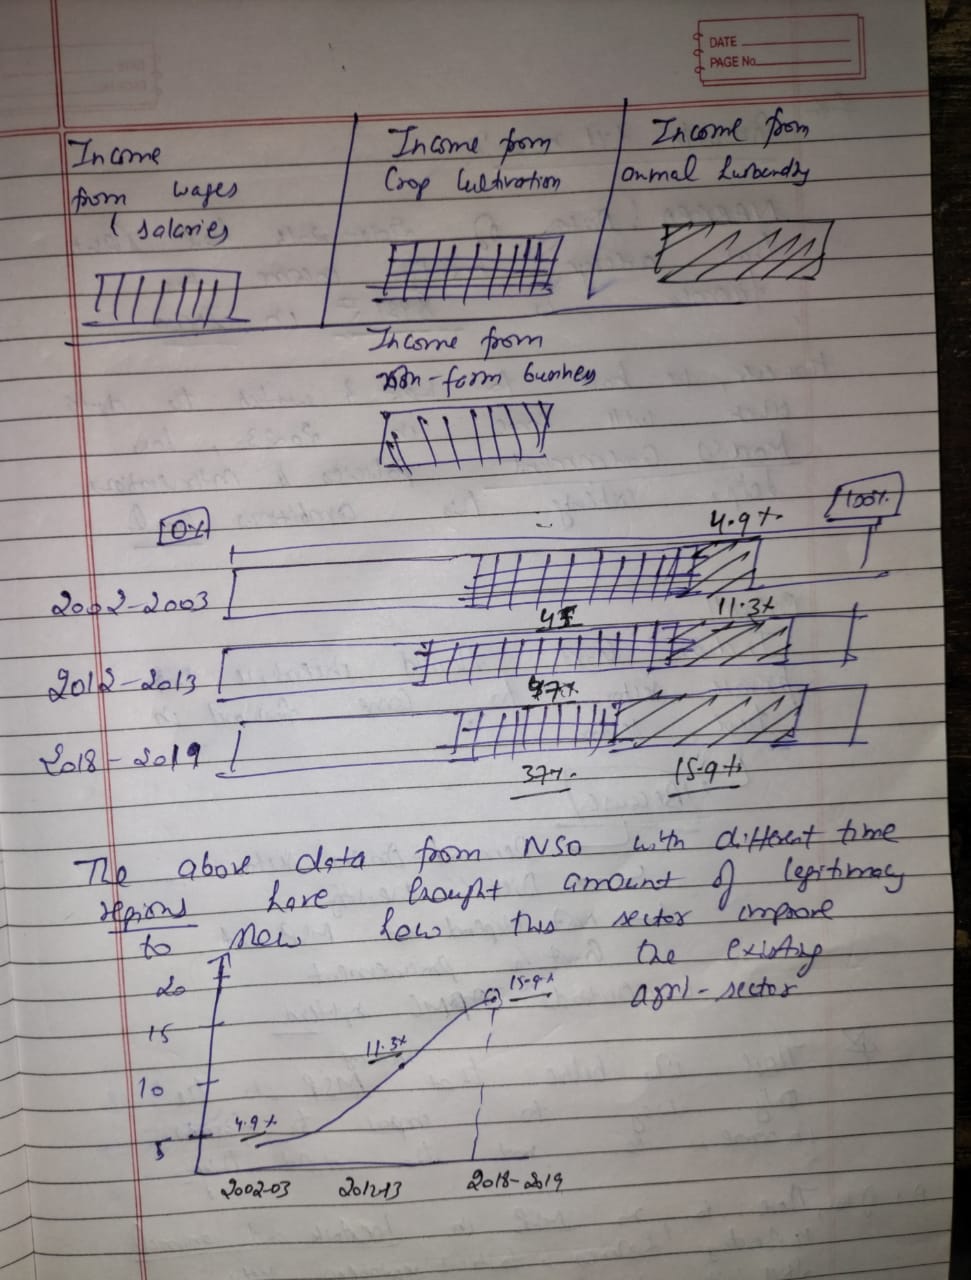 DATE
PAGE No.
Income
from wages
& salaries
Income from
Crop Cultivation
Income from
anmal husbandry
Income from
non-farm
0%
100%
4.9%
2002-2003
11.3%
2012-2013
47%
2018-2019
37%
15.9%
The above data from NSO with different time
regions have brought amount of legitimacy
to new how this sector improve
the existing
agri-sector
20
15.9%
15
11.3%
10
4.9%
5
2002-03 2012-13 2018-2019